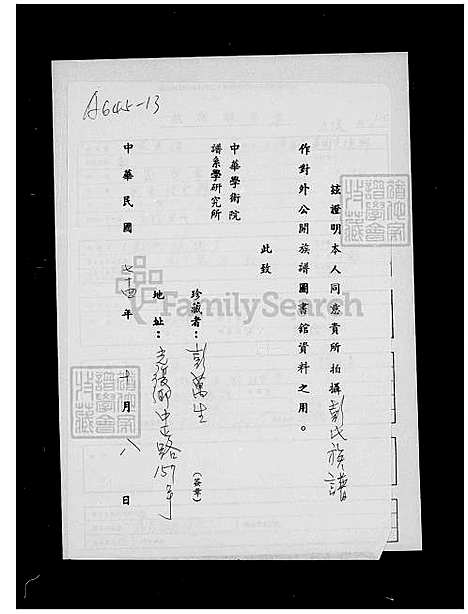 A645-13
茲證明本人同意貴所拍攝彭氏族譜
作對外公開族譜圖書館資料之用。
此致
中華學術院
譜系學研究所
珍藏者：彭萬生（簽章）
地址：光復鄉中正路157号
中華民國七十四年十月八日
FamilySearch